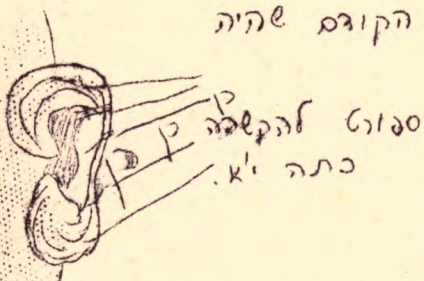 הקודם שהיה
ספורט להקשבה
כתה י"א.